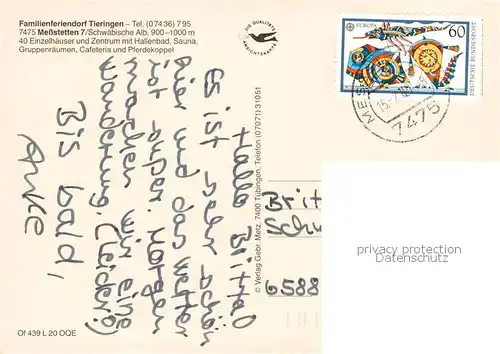 Familienferiendorf Tieringen – Tel. (07436) 795
7475 Meßstetten 7/Schwäbische Alb, 900–1000 m
40 Einzelhäuser und Zentrum mit Hallenbad, Sauna,
Gruppenräumen, Cafeteria und Pferdekoppel
DIE QUALITÄTS
ANSICHTSKARTE
EUROPA
60
DEUTSCHE BUNDESPOST
MES
7475
Hallo Britta!
Es ist sehr schön
hier und das Wetter
ist super. Morgen
machen wir eine
Wanderung. (Leider?)
Bis bald,
Anke
© Verlag Gebr. Metz, 7400 Tübingen, Telefon (07071) 31051
Brit
Schw
6588
privacy protection
Datenschutz
Of 439 L 20 OQE